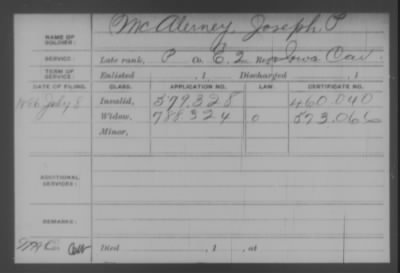 NAME OF SOLDIER: McAlerney, Joseph P
SERVICE: Late rank, P Co. E, 2 Reg. Iowa Cav.
TERM OF SERVICE: Enlisted , 1 Discharged , 1
DATE OF FILING. CLASS. APPLICATION NO. LAW. CERTIFICATE NO.
July 8 Invalid, 579.325 460.040
Widow, 788324 0 573.066
Minor,
ADDITIONAL SERVICES:
REMARKS:
Died , 1 , at